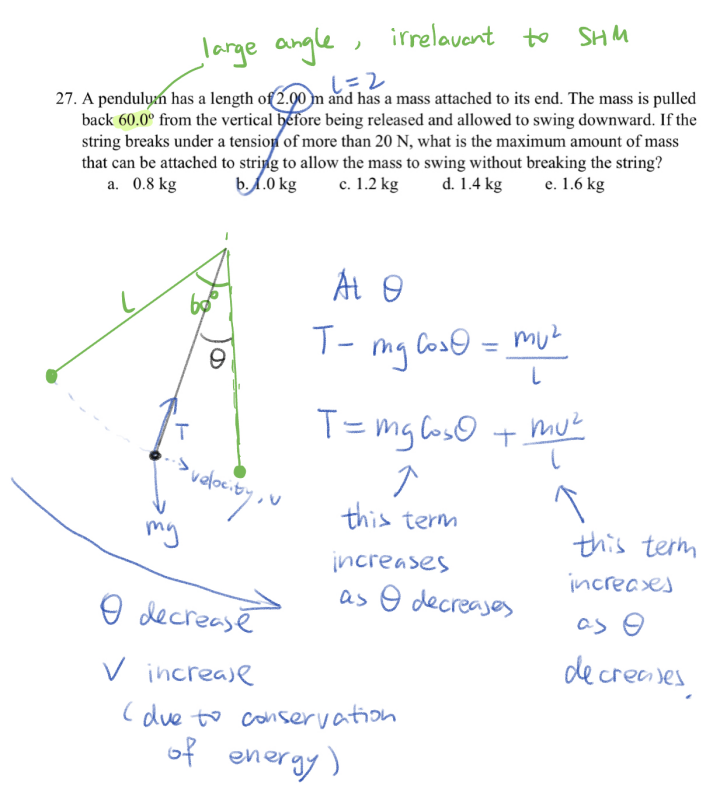 large angle, irrelavant to SHM
l=2
27. A pendulum has a length of 2.00 m and has a mass attached to its end. The mass is pulled
back 60.0° from the vertical before being released and allowed to swing downward. If the
string breaks under a tension of more than 20 N, what is the maximum amount of mass
that can be attached to string to allow the mass to swing without breaking the string?
a. 0.8 kg b. 1.0 kg c. 1.2 kg d. 1.4 kg e. 1.6 kg
L
60°
θ
T
velocity, v
mg
θ decrease
V increase
(due to conservation
of energy)
At θ
T - mg Cosθ = mv²/l
T = mg Cosθ + mv²/l
this term
increases
as θ decreases
this term
increases
as θ
decreases.